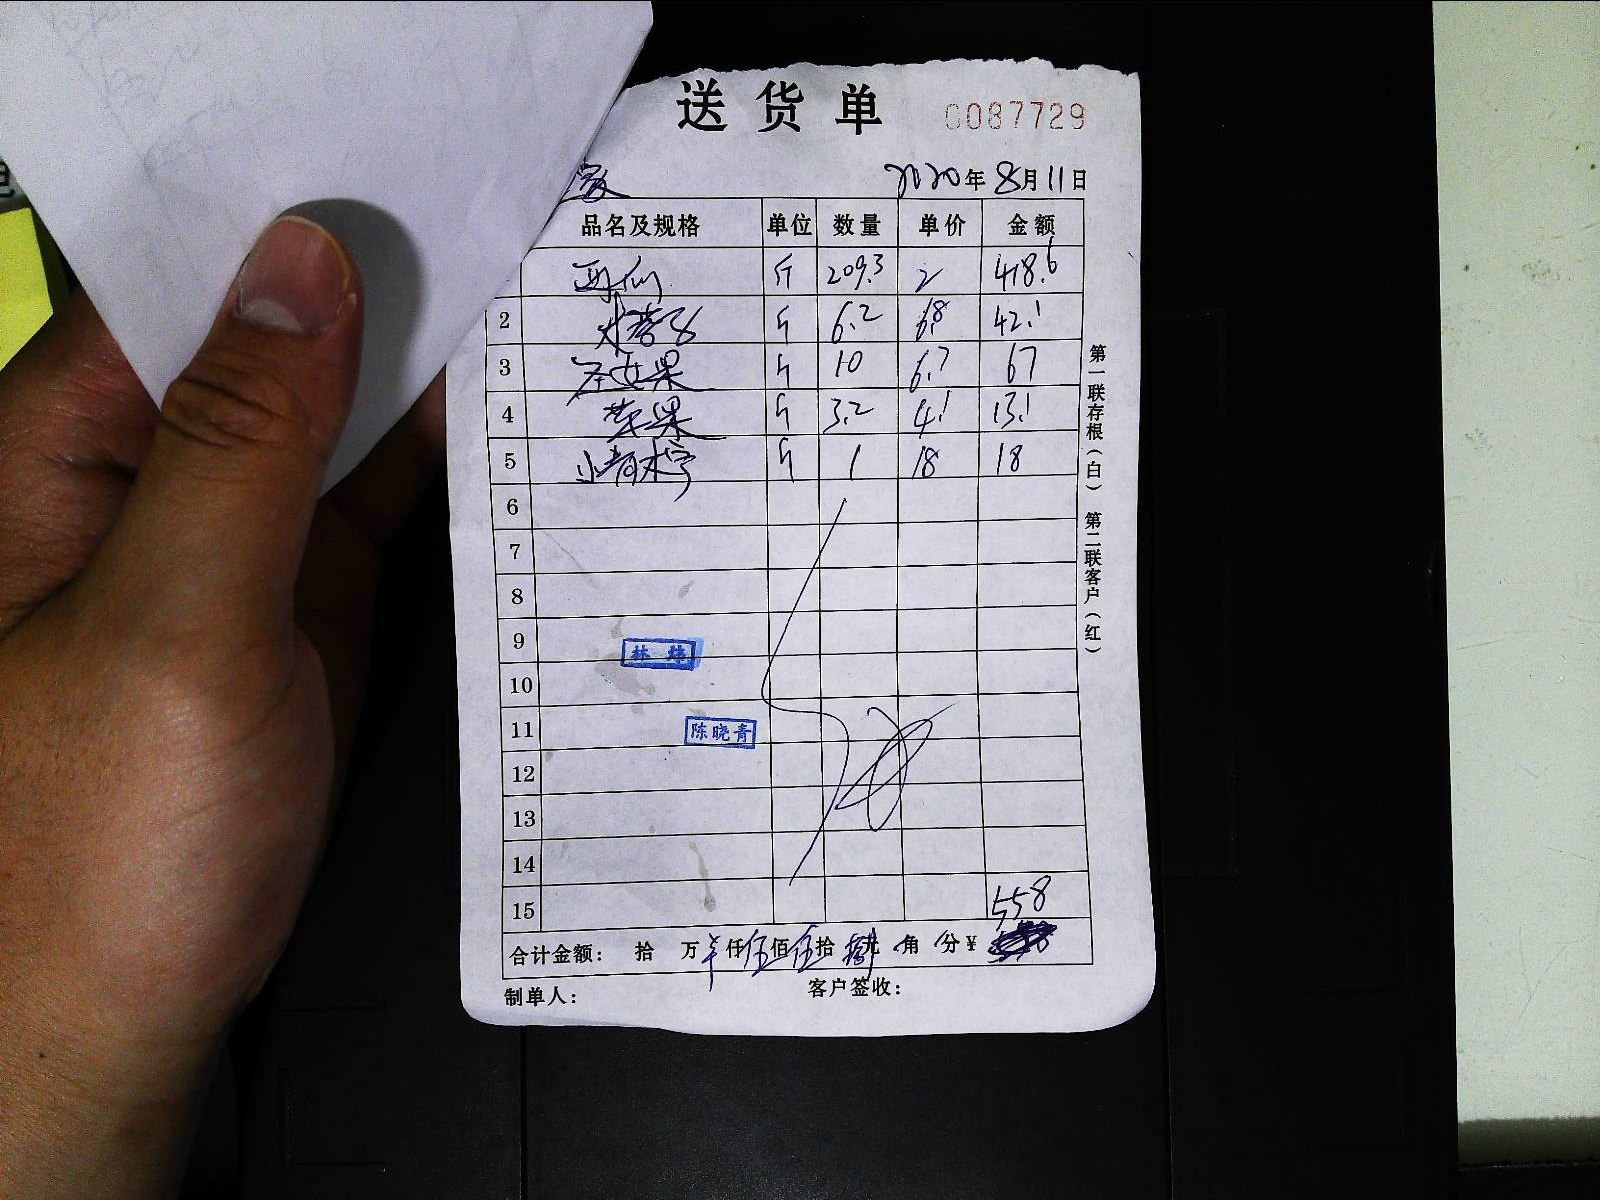 送货单 0087729
2020年8月11日
品名及规格 单位 数量 单价 金额
斤 209.3 2 418.6
2 斤 6.2 6.8 42.1
3 圣女果 斤 10 6.7 67
4 苹果 斤 3.2 4.1 13.1
5 小青木 斤 1 18 18
6
7
8
9 林
10
11 陈晓青
12
13
14
15 558
合计金额： 拾 万 仟 伍佰 伍拾 元 角 分 ¥
制单人： 客户签收：
第一联存根（白） 第二联客户（红）